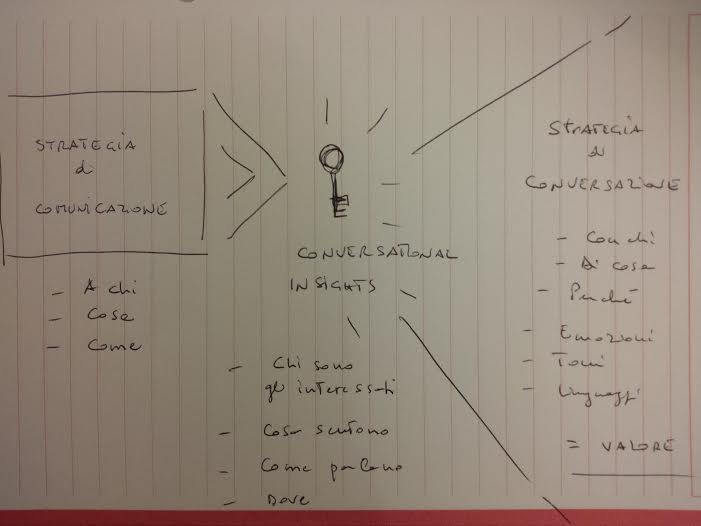 STRATEGIA
di
COMUNICAZIONE
- A chi
- Cosa
- Come
CONVERSATIONAL
INSIGHTS
- Chi sono
gli interessati
- Cosa sentono
- Come parlano
- Dove
STRATEGIA
di
CONVERSAZIONE
- Con chi
- Di cosa
- Perché
- Emozioni
- Toni
- Linguaggi
= VALORE